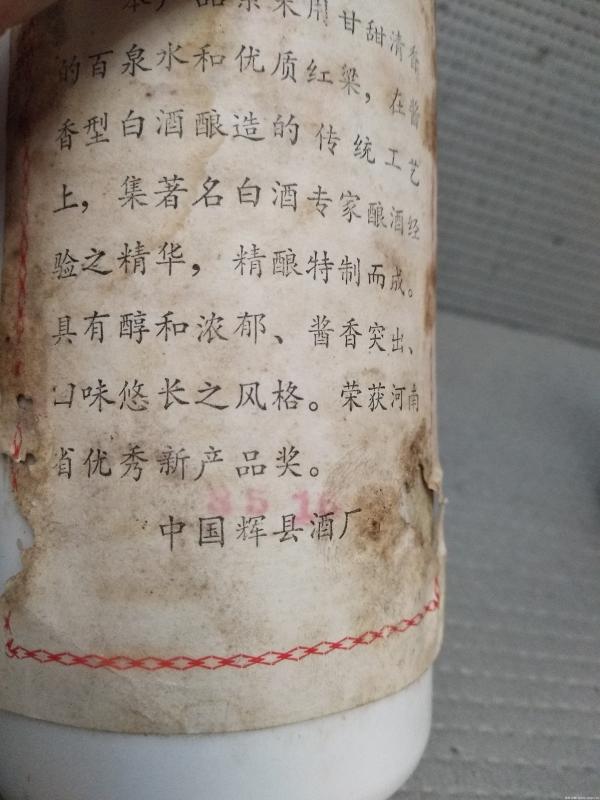 本产品系采用甘甜清香
的百泉水和优质红粱，在酱
香型白酒酿造的传统工艺
上，集著名白酒专家酿酒经
验之精华，精酿特制而成。
具有醇和浓郁、酱香突出、
口味悠长之风格。荣获河南
省优秀新产品奖。
85 16
中国辉县酒厂